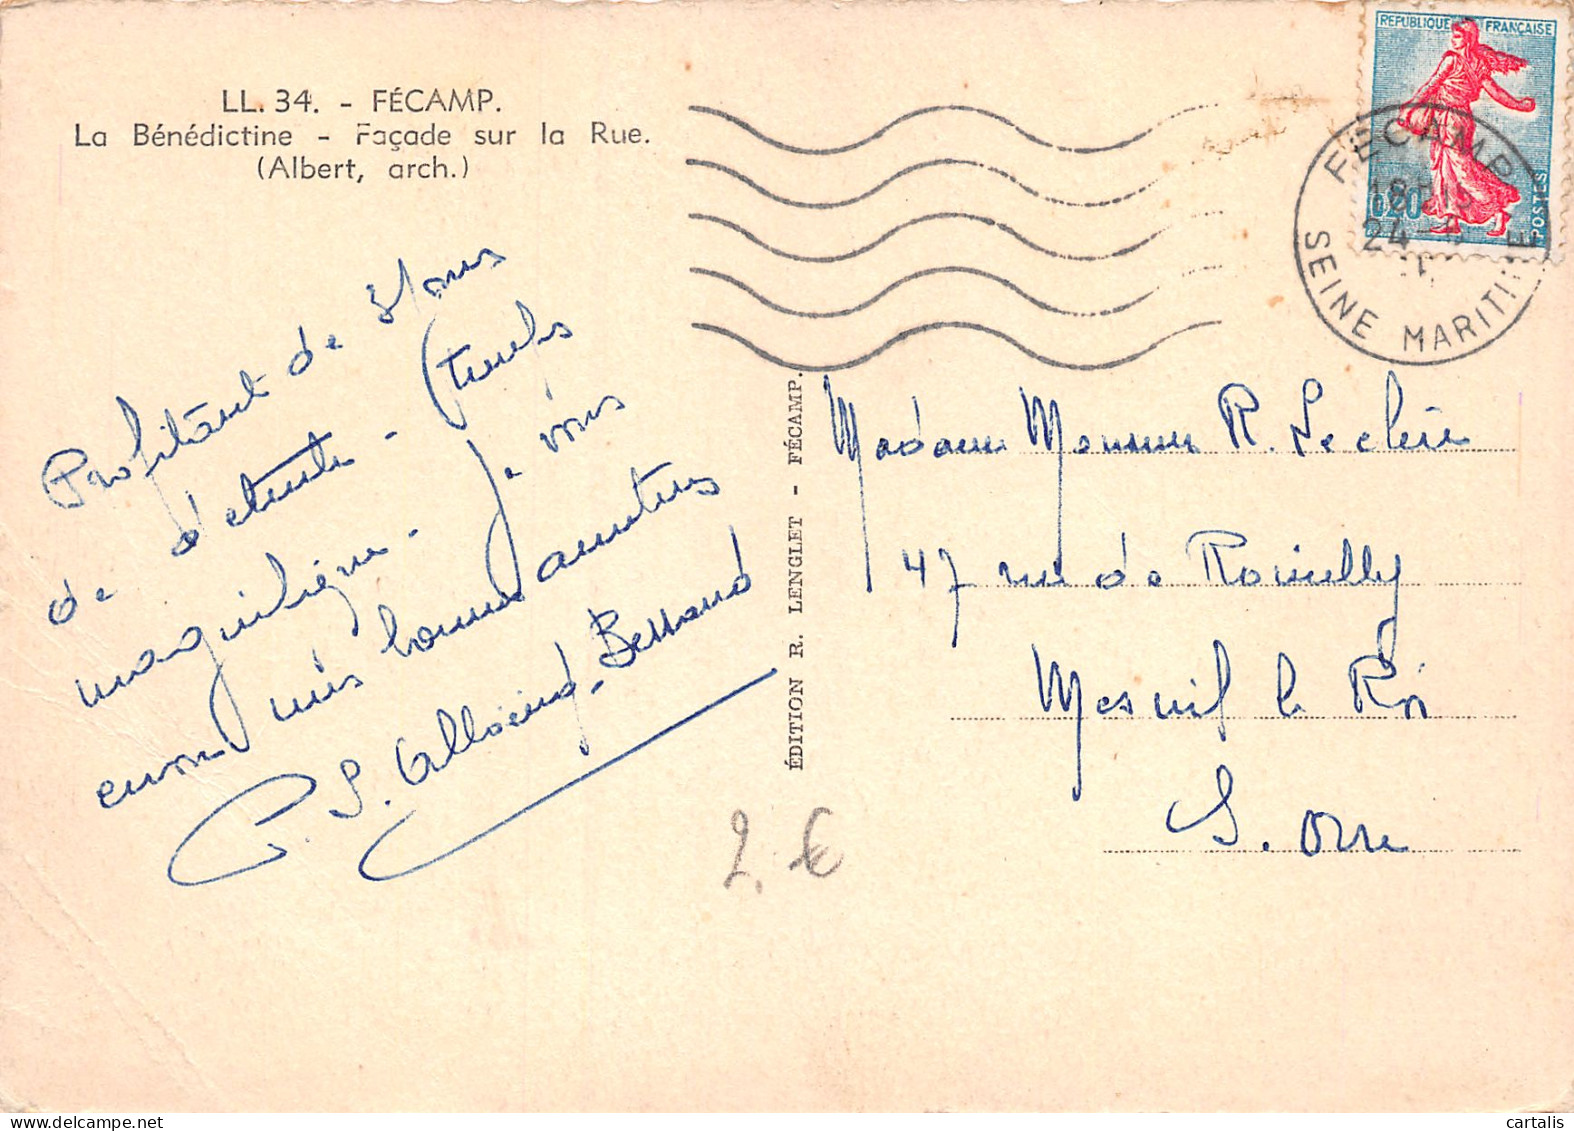 LL. 34. - FÉCAMP.
La Bénédictine - Façade sur la Rue.
(Albert, arch.)
Profitant de 3 jours
de détente - (temps
magnifique - je vous
envoie mes bonnes amitiés
P. S. Alloend-Bessand
ÉDITION R. LENGLET - FÉCAMP.
REPUBLIQUE FRANÇAISE
0,20
POSTES
FÉCAMP
24
SEINE MARITIME
Madame Monsieur R. Leclère
47 rue de Romilly
Mesnil le Roi
S. Oise
2 €
cartalis